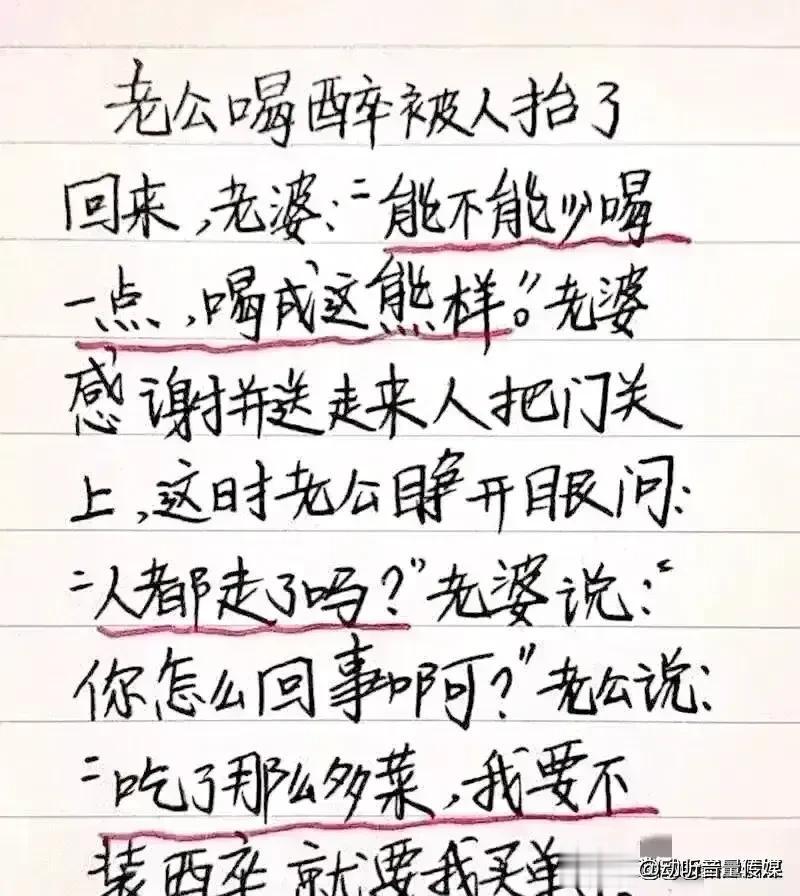 老公喝醉被人抬了
回来,老婆:“能不能少喝
一点,喝成这熊样。”老婆
感谢并送走来人把门关
上,这时老公睁开眼问:
“人都走了吗?”老婆说:“
你怎么回事啊?”老公说:
“吃了那么多菜,我要不
装醉就要我买单
@动听音量传媒